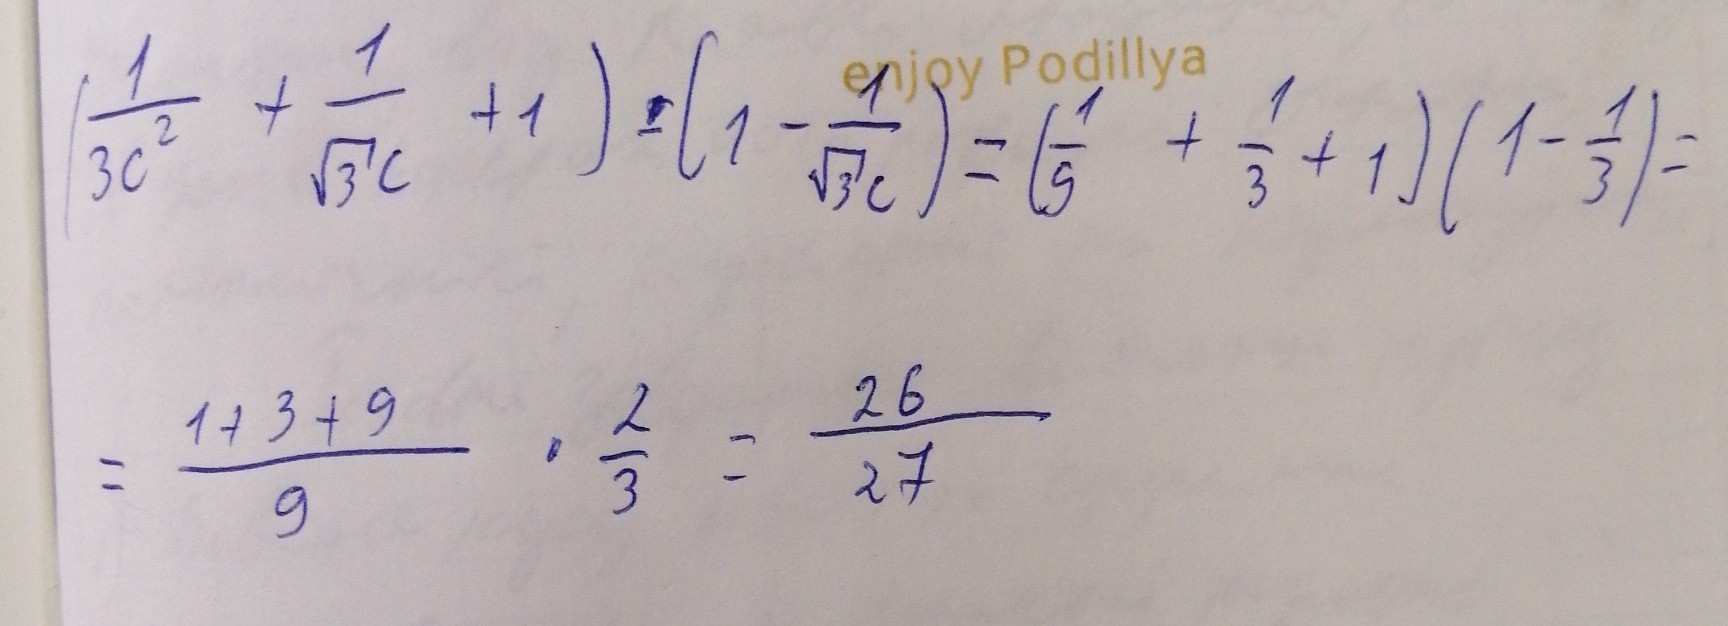 enjoy Podillya
(1/(3c²) + 1/(√3 c) + 1) · (1 - 1/(√3 c)) = (1/9 + 1/3 + 1)(1 - 1/3) =
= (1+3+9)/9 · 2/3 = 26/27